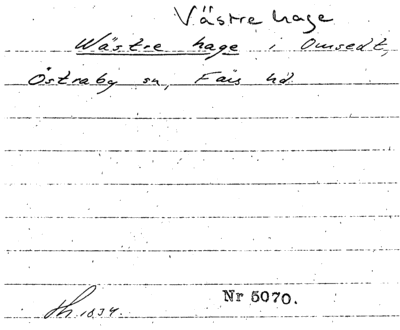 Västre hage
Wästre hage i Omsedt,
Östraby sn, Färs hd.
Th. 1834.
Nr 5070.